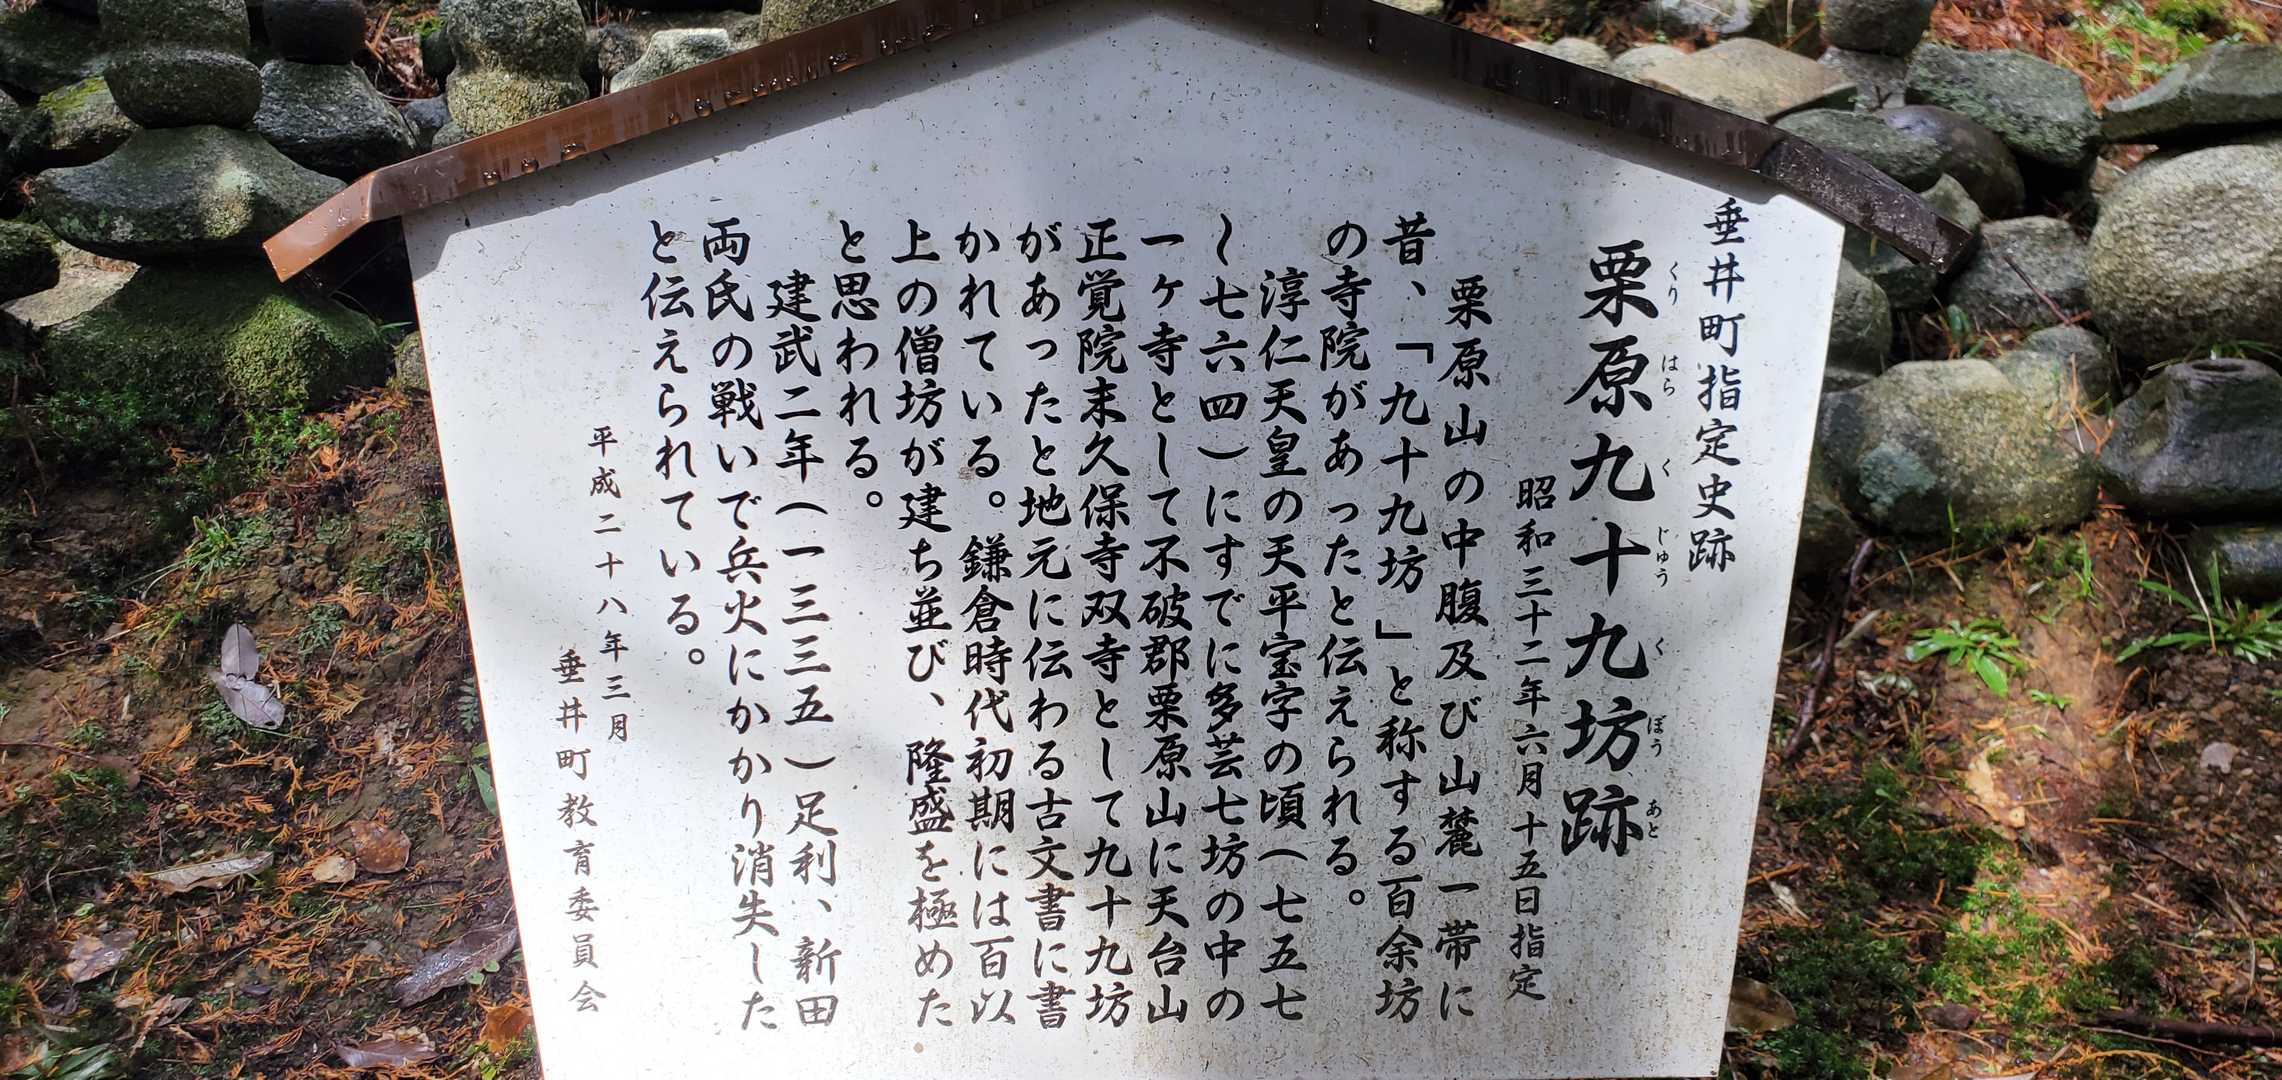 垂井町指定史跡
栗原九十九坊跡
くり はら く じゅう く ぼう あと
昭和三十二年六月十五日指定
栗原山の中腹及び山麓一帯に
昔、「九十九坊」と称する百余坊
の寺院があったと伝えられる。
淳仁天皇の天平宝字の頃(七五七
～七六四)にすでに多芸七坊の中の
一ヶ寺として不破郡栗原山に天台山
正覚院末久保寺双寺として九十九坊
があったと地元に伝わる古文書に書
かれている。鎌倉時代初期には百以
上の僧坊が建ち並び、隆盛を極めた
と思われる。
建武二年(一三三五)足利、新田
両氏の戦いで兵火にかかり消失した
と伝えられている。
平成二十八年三月
垂井町教育委員会